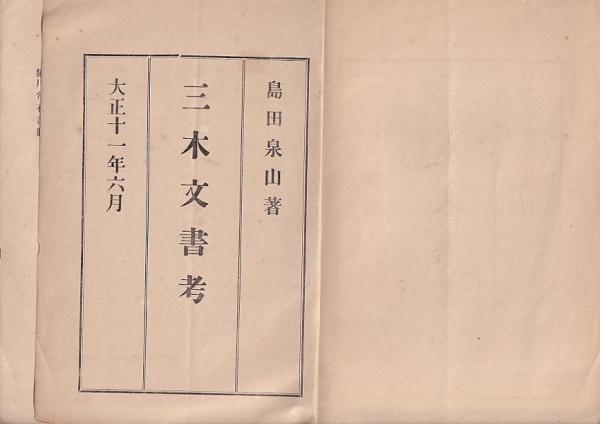 島田泉山著
三木文書考
大正十一年六月